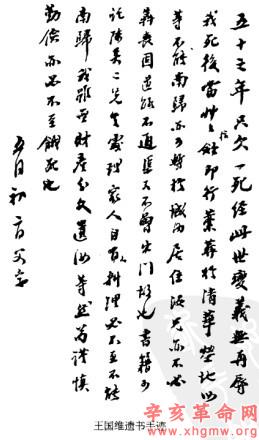 五十之年只欠一死经此世变義無再辱
我死後當草草棺斂即行藁葬於清華塋地汝
等不能南歸亦可暫於城内居住汝兄亦不必
奔喪因道路不通渠又不曾出門故也書籍可
託陳吳二先生處理家人自有人料理必不至不能
南歸我雖無財産分文遺汝等然苟謹慎
勤儉亦必不至餓死也
五月初二日父字
王国维遗书手迹
辛亥革命网
www.xhgmw.org